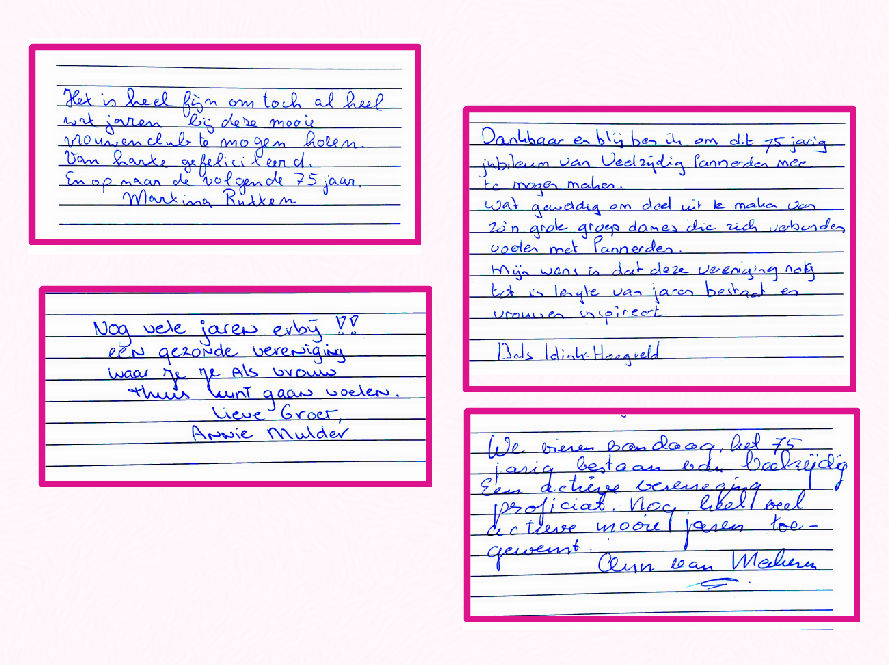 Het is heel fijn om toch al heel
wat jaren bij deze mooie
vrouwenclub te mogen horen.
Van harte gefeliciteerd.
En op naar de volgende 75 jaar.
Martina Rutten
Nog vele jaren erbij !!
een gezonde vereniging
waar je je als vrouw
thuis kunt gaan voelen.
Lieve Groet,
Annie Mulder
Dankbaar en blij ben ik om dit 75 jarig
jubileum van Veelzijdig Pannerden mee
te mogen maken.
Wat geweldig om deel uit te maken van
zo'n grote groep dames die zich verbonden
voelen met Pannerden.
Mijn wens is dat deze vereniging nog
tot in lengte van jaren bestaat en
vrouwen inspireert
We vieren vandaag, het 75
jarig bestaan van Veelzijdig
Een actieve vereneging
proficiat. Nog heel veel
actieve mooie jaren toe-
gewenst.
van